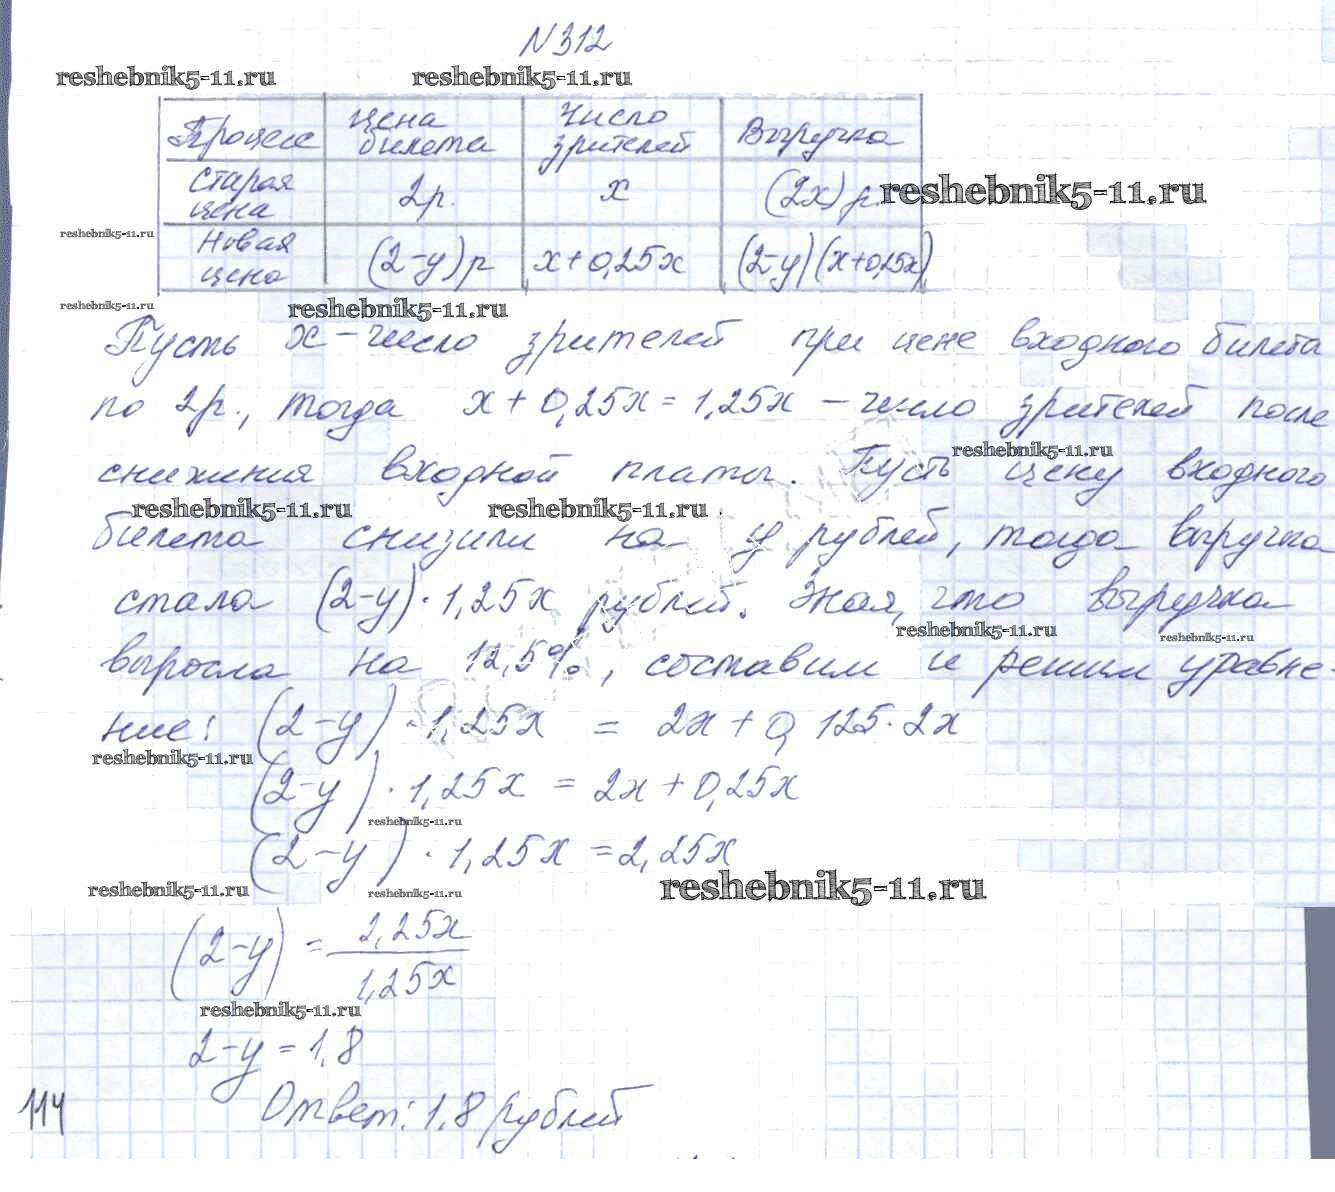 N 312
reshebnik5-11.ru reshebnik5-11.ru
Процесс цена билета Число зрителей Выручка
старая цена 2р. x (2x) р reshebnik5-11.ru
reshebnik5-11.ru
Новая цена (2-y) р x+0,25x (2-y)(x+0,25x)
reshebnik5-11.ru reshebnik5-11.ru
Пусть x – число зрителей при цене входного билета
по 2р., тогда x + 0,25x = 1,25x – число зрителей после
reshebnik5-11.ru
снижения входной платы. Пусть цену входного
reshebnik5-11.ru reshebnik5-11.ru
билета снизили на y рублей, тогда выручка
стала (2-y) · 1,25x рублей. Зная, что выручка
reshebnik5-11.ru reshebnik5-11.ru
выросла на 12,5%, составим и решим уравне-
ние: (2-y) · 1,25x = 2x + 0,125 · 2x
reshebnik5-11.ru
(2-y) · 1,25x = 2x + 0,25x
reshebnik5-11.ru
(2-y) · 1,25x = 2,25x
reshebnik5-11.ru reshebnik5-11.ru reshebnik5-11.ru
(2-y) = 2,25x / 1,25x
reshebnik5-11.ru
2-y = 1,8
114 Ответ: 1,8 рублей